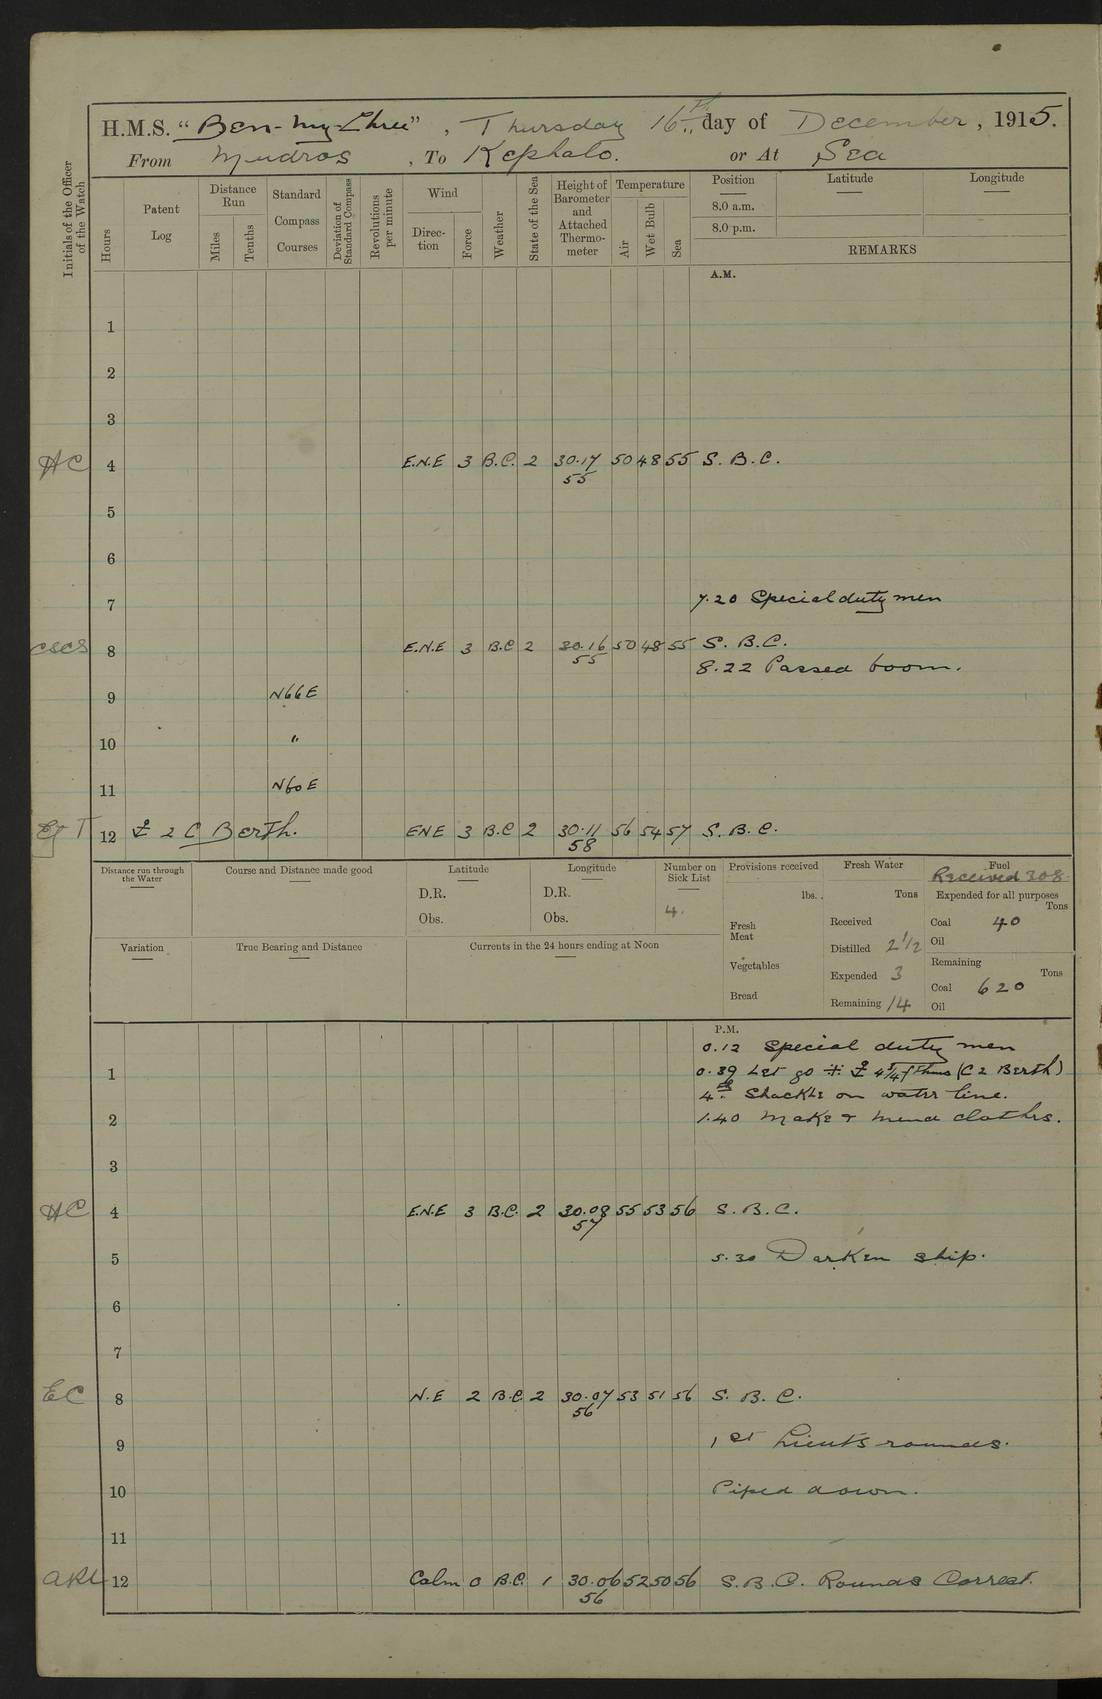 H.M.S. "Ben-my-Chree", Thursday 16th day of December, 1915.
From Mudros, To Kephalo. or At Sea
Initials of the Officer of the Watch
Hours
Patent Log
Distance Run
Miles
Tenths
Standard Compass Courses
Deviation of Standard Compass
Revolutions per minute
Wind
Direc-tion
Force
Weather
State of the Sea
Height of Barometer and Attached Thermo-meter
Temperature
Air
Wet Bulb
Sea
Position Latitude Longitude
8.0 a.m.
8.0 p.m.
REMARKS
A.M.
1
2
3
HC 4 E.N.E 3 B.C. 2 30.17 50 48 55 S.B.C.
55
5
6
7 7.20 Special duty men
CSCS 8 E.N.E 3 B.C 2 30.16 50 48 55 S.B.C.
55
8.22 Passed boom.
9 N66E
10 "
11 N60E
12 2 C Berth. ENE 3 B.C 2 30.11 56 54 57 S.B.C.
58
Distance run through the Water
Course and Distance made good
Latitude
D.R.
Obs.
Longitude
D.R.
Obs.
Number on Sick List
4.
Variation
True Bearing and Distance
Currents in the 24 hours ending at Noon
Provisions received
lbs.
Fresh Meat
Vegetables
Bread
Fresh Water
Tons
Received
Distilled 2 1/2
Expended 3
Remaining 14
Fuel
Received 308.
Expended for all purposes
Tons
Coal 40
Oil
Remaining
Tons
Coal 620
Oil
P.M.
0.12 Special duty men
1 0.39 Let go (C 2 Berth)
4th Shackle on water line.
2 1.40 Make & mend clothes.
3
HC 4 E.N.E 3 B.C. 2 30.08 55 53 56 S.B.C.
57
5 5.30 Darken ship.
6
7
EC 8 N.E 2 B.C. 2 30.07 53 51 56 S.B.C.
56
9 1st Lieut's rounds.
10 Piped down.
11
12 Calm 0 B.C. 1 30.06 52 50 56 S.B.C. Rounds Correct.
56